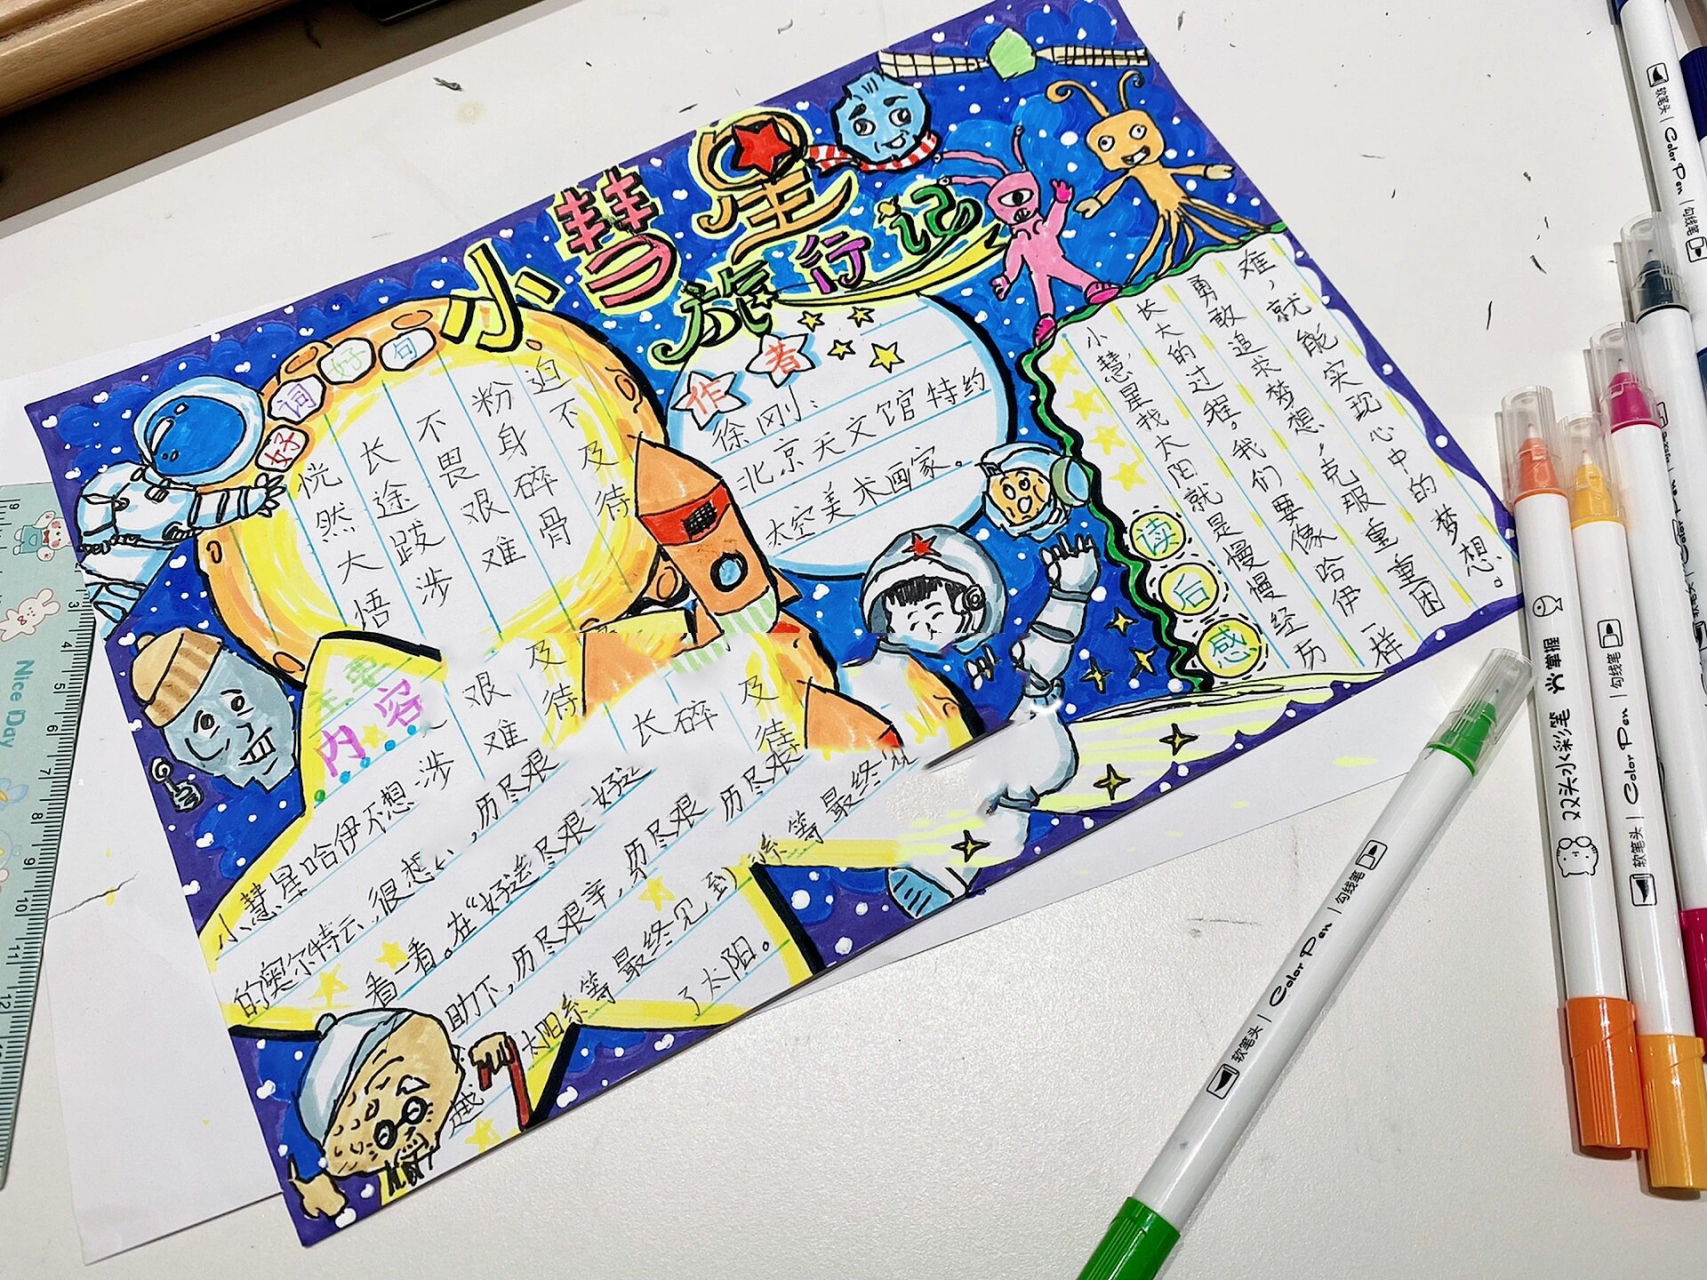 小彗星
旅行记
好词好句
恍然大悟
长途跋涉
不畏艰难
粉身碎骨
迫不及待
作者
徐刚:
北京天文馆特约
太空美术画家。
读后感
小慧星找太阳就是慢慢经历
长大的过程。我们要像哈伊一样
勇敢追求梦想,克服重重困
难,就能实现心中的梦想。
主要
内容
及待
艰难
涉
长碎
及待
小慧星哈伊不想
,历尽艰
的奥尔特云,很想
好运
尽艰
历尽艰
看一看。在“好运
历尽艰
最终
助下,历尽艰辛,
系等最终
太阳系等最终见到
了太阳。
Nice Day
3
4
5
6
7
8
9
10
11
12
软笔头 | Color Pen | 勾线笔
软笔头 | Color Pen | 勾线笔
软笔头 | Color Pen | 勾线笔
双头水彩笔
掌握